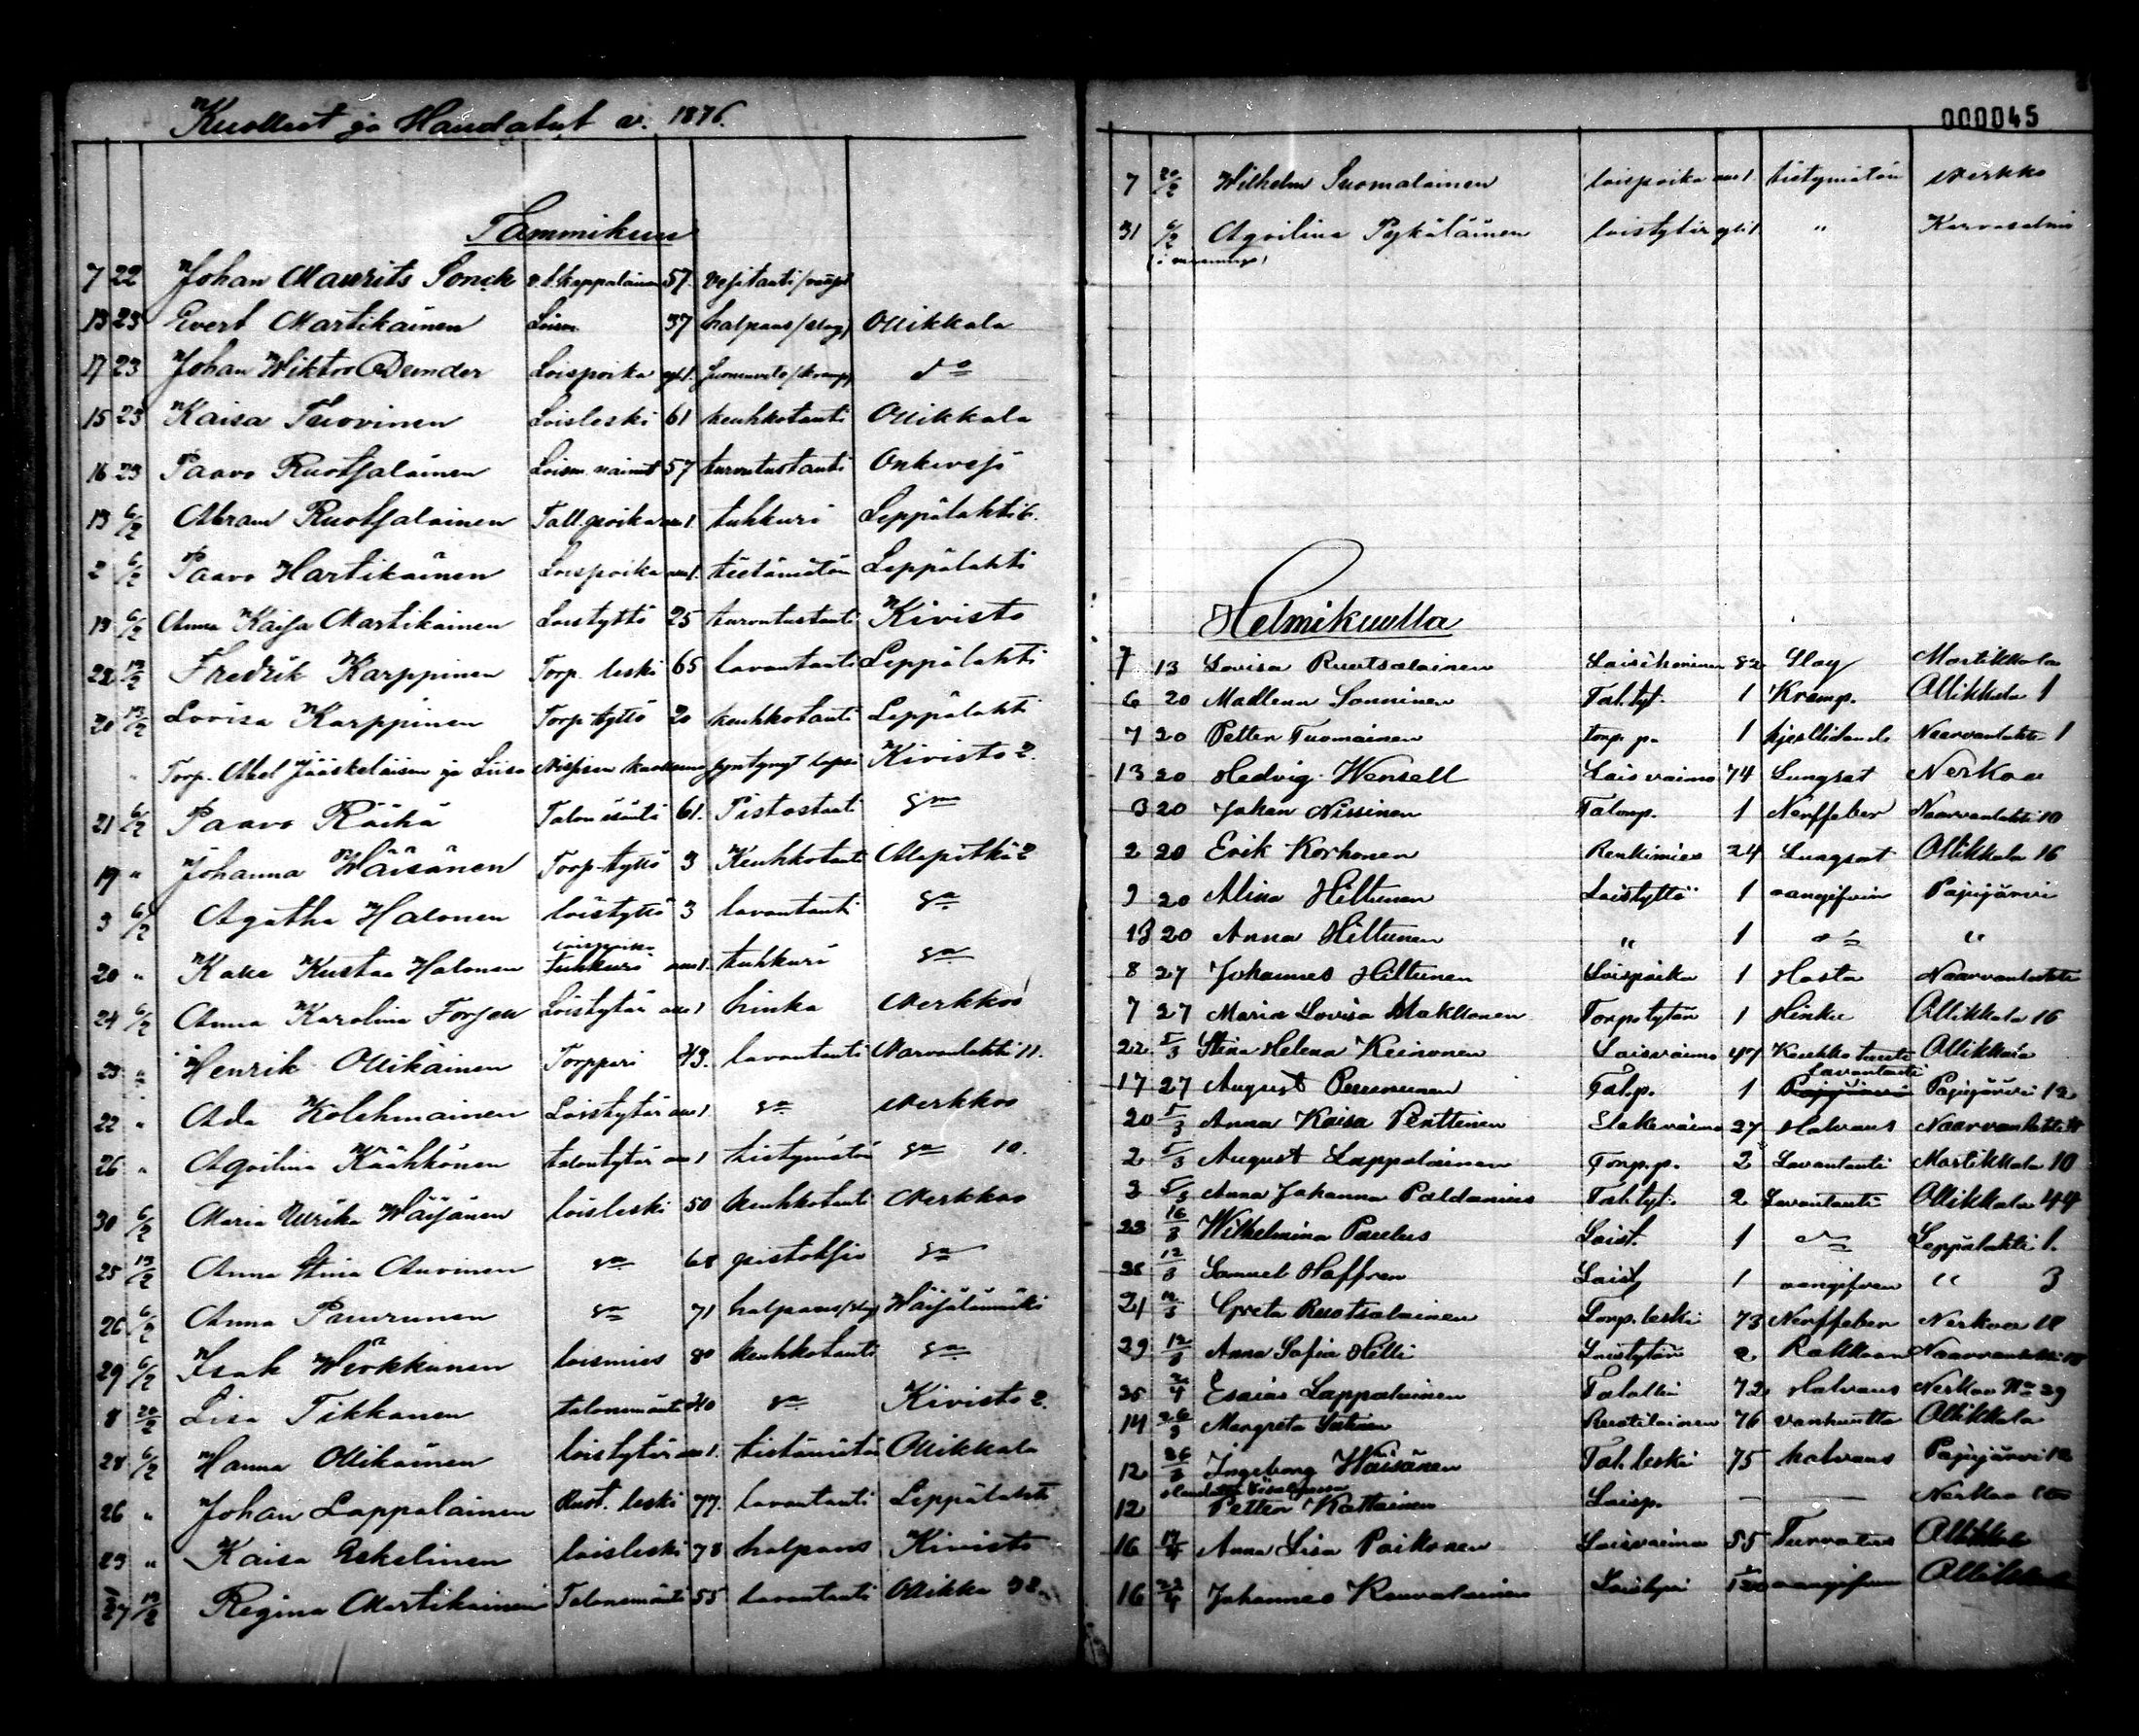 Kuolleet ja Haudatut v. 1876.
Tammikuu
7 22 Johan Maurits Sonck v.t. kappalainen 57.
13 23 Evert Martikainen Loism. 37 halpaus (slag) Ollikkala
17 23 Johan Wiktor Demder Loispoika d:o
15 23 Kaisa Tuovinen Loisleski 61 keuhkotauti Ollikkala
16 23 Paavo Ruotsalainen Loism. nainut 57 turvotustauti Onkivesi
13 6/2 Abram Ruotsalainen Tall. poika tuhkuri Leppälahti 6.
2 6/2 Paavo Hartikainen Loispoika tietämätön Leppälahti
19 6/2 Anna Kaisa Martikainen Loistyttö 25 turvotustauti Kivisto
22 13/2 Fredrik Karppinen Torp. leski 65 lavantauti Leppälahti
20 13/2 Lovisa Karppinen Torp. tyttö 20 keuhkotauti Leppälahti
" Torp. Abel Jääskeläisen ja Liisa Nissisen syntynyt lapsi Kivisto 2.
21 6/2 Paavo Räihä Talon isäntä 61. Pistostauti
19 " Johanna Wäisänen Torp. tyttö 3 Keuhkotauti Alapitkä 2
3 6/2 Agatha Halonen loistyttö 3 lavantauti
loispoika
20 " Kustaa Halonen Tuhkuri tuhkuri
24 6/2 Anna Karolina Loistytär hinku Nerkkoo
23 " Henrik Ollikainen Torppari 43. lavantauti Narvanlahti 11.
22 " Ada Kolehmainen Loistytär Nerkkoo
26 " Aqvilina Kääkkönen talontytär tietymätön 10.
30 6/2 Maria Ulrika Wäisänen loisleski 50 keuhkotauti Nerkkoo
25 13/2 Anna Stina Auvinen 68
26 6/2 Anna Puurunen 71 halpaus (slag) Wäisälänmäki
29 6/2 Isak loismies 80 keuhkotauti
8 20/2 Lisa Tikkanen talonemäntä 40 Kivisto 2.
28 6/2 Hanna Ollikainen loistytär tietämätön Ollikkala
26 " Johan Lappalainen Rust. leski 77. lavantauti Leppälahti
23 " Kaisa Eskelinen loisleski 78 halpaus Kivisto
27 13/2 Regina Martikainen Talonemäntä 55 lavantauti
000045
7 20/2 Wilhelm Suomalainen loispoika tietymätön Nerkko
31 6/2 Aqvilina Pykäläinen loistytär " Karvasalmi
Helmikuulla
7 13 Lovisa Ruotsalainen 82 Slag Martikkala
6 20 Madlena Sonninen Tal. tyt. 1 Kramp. Ollikkala 1
7 20 Petter Tuomainen torp. p. 1 Naarvanlahti 1
13 20 Hedvig Wensell Lois vaimo 74 Lungsot Nerkoo
3 20 Johan Nissinen Talonp. 1 Nerffeber Naarvanlahti 10
2 20 Erik Korhonen Renkimies 24 Lungsot Ollikkala 16
9 20 Alina Hiltunen Loistyttö 1 oangifven Pajujärvi
13 20 Anna Hiltunen " 1 d:o "
8 27 Johannes Hiltunen Loispoika 1 Hosta Naarvanlahti
7 27 Maria Lovisa Makkonen Torp. tytär 1 Hinku Ollikkala 16
22 5/3 Stina Helena Keinonen Loisvaimo 47 Keuhko tauti Ollikkala
Lavantauti
17 27 August Puurunen Tal. p. 1 Pajujärvi Pajujärvi 12
20 5/3 Anna Kaisa Penttinen 27 Halvaus Naarvanlahti
2 5/3 August Lappalainen Torp. p. 2 Lavantauti Martikkala 10
3 5/3 Anna Johanna Paldanius Tal. tyt. 2 Lavantauti Ollikkala 44
23 16/3 Wilhelmina Paulus Loist. 1 d:o Leppälahti 1.
28 12/3 Samuel Haffren 1 oangifven " 3
21 12/3 Greta Ruotsalainen Torp. leski 73 Nerffeber Nerkoo 18
29 12/3 Anna Sofia Hilli Loistytär 2 Naarvanlahti
25 2/4 Esaias Lappalainen 72 Halvaus Nerkoo No 29
14 26/3 Margreta Ruotilainen 76 vanhuutta Ollikkala
12 26/3 Ingeborg Wäisänen Tal. leski 75 halvaus Pajujärvi 12
12 Petter Kattainen Loisp. — — Nerkoo
16 17/4 Anna Lisa Paikonen Loisvaimo 55 Turvotus Ollikkala
16 22/4 Johannes Ruuvalainen oangifven Ollikkala